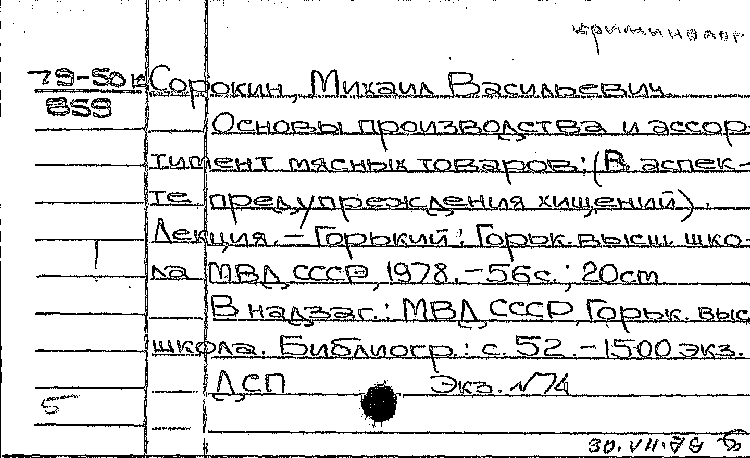 криминолог
79-50к Сорокин, Михаил Васильевич
859
Основы производства и ассор-
тимент мясных товаров: (В аспек-
те предупреждения хищений).
Лекция. – Горький: Горьк. высш. шко-
ла МВД СССР, 1978. – 56с.; 20cm
В надзаг.: МВД СССР, Горьк. выс
школа. Библиогр.: с. 52 – 1500 экз.
ДСП Экз. №74
5
30.VII.79